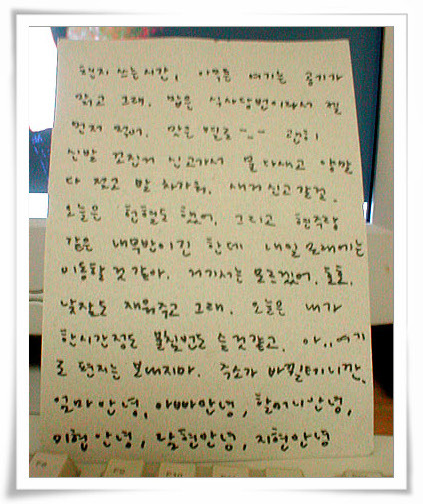 편지 쓰는시간, 아무튼 여기는 공기가
맑고 그래. 밥은 식사당번이라서 젤
먼저 먹어. 맛은 별로 -_- 괜히
신발 꼬진거 신고가서 물 다새고 양말
다 젖고 발 차가워. 새거 신고갈걸.
오늘은 헌혈도 했어. 그리고 현주랑
같은 내무반이긴 한데 내일 모레에는
이동할것같아. 거기서는 모르겠어. 호호.
낮잠도 재워주고 그래. 오늘은 내가
한시간정도 불침번도 슬것같고. 아.. 여기
로 편지는 보내지마. 주소가 바뀔테니깐.
엄마안녕, 아빠안녕, 할머니안녕,
미현안녕, 남현안녕, 지현안녕
F8 F9 F10